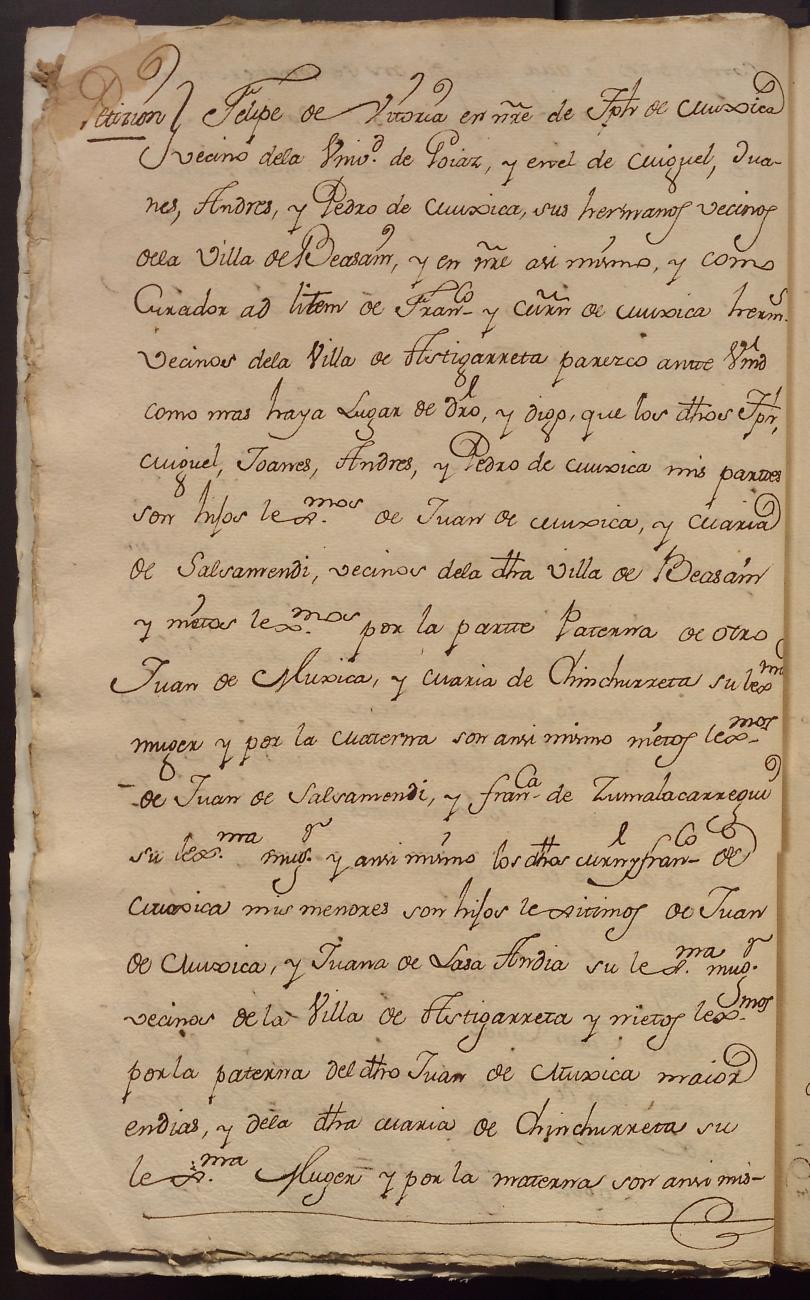 Petizion / Felipe de Vitoria en nre de Jph de Muxica
vecino dela Vnivd. de Goiaz, y en el de Miguel, Jua-
nes, Andres, y Pedro de Muxica, sus hermanos vecinos
dela Villa de Beasain, y en nre asi mismo, y como
Curador ad litem de Franco y Mrn de Muxica herms.
vecinos dela Villa de Astigarreta parezco ante Vmd
como mas haya Lugar de dro, y digo, que los dhos Jph,
Miguel, Joanes, Andres, y Pedro de Muxica mis partes
son hijos lexmos de Juan de Muxica, y Maria
de Salsamendi, vecinos dela dha Villa de Beasain
y nietos lexmos por la parte Paterna de otro
Juan de Muxica, y Maria de Chinchurreta su lexma
muger y por la Materna son ansi mismo nietos lexmos
de Juan de Salsamendi, y franca de Zumalacarregui
su lexma mugr y ansi mismo los dhos Mrn y franco de
Muxica mis menores son hijos lexitimos de Juan
de Muxica, y Juana de Lasa Andia su lexma mugr
vecinos de la Villa de Astigarreta y nietos lexmos
por la paterna del dho Juan de Muxica maior
en dias, y dela dha Maria de Chinchurreta su
lexma Muger y por la materna son ansi mis-